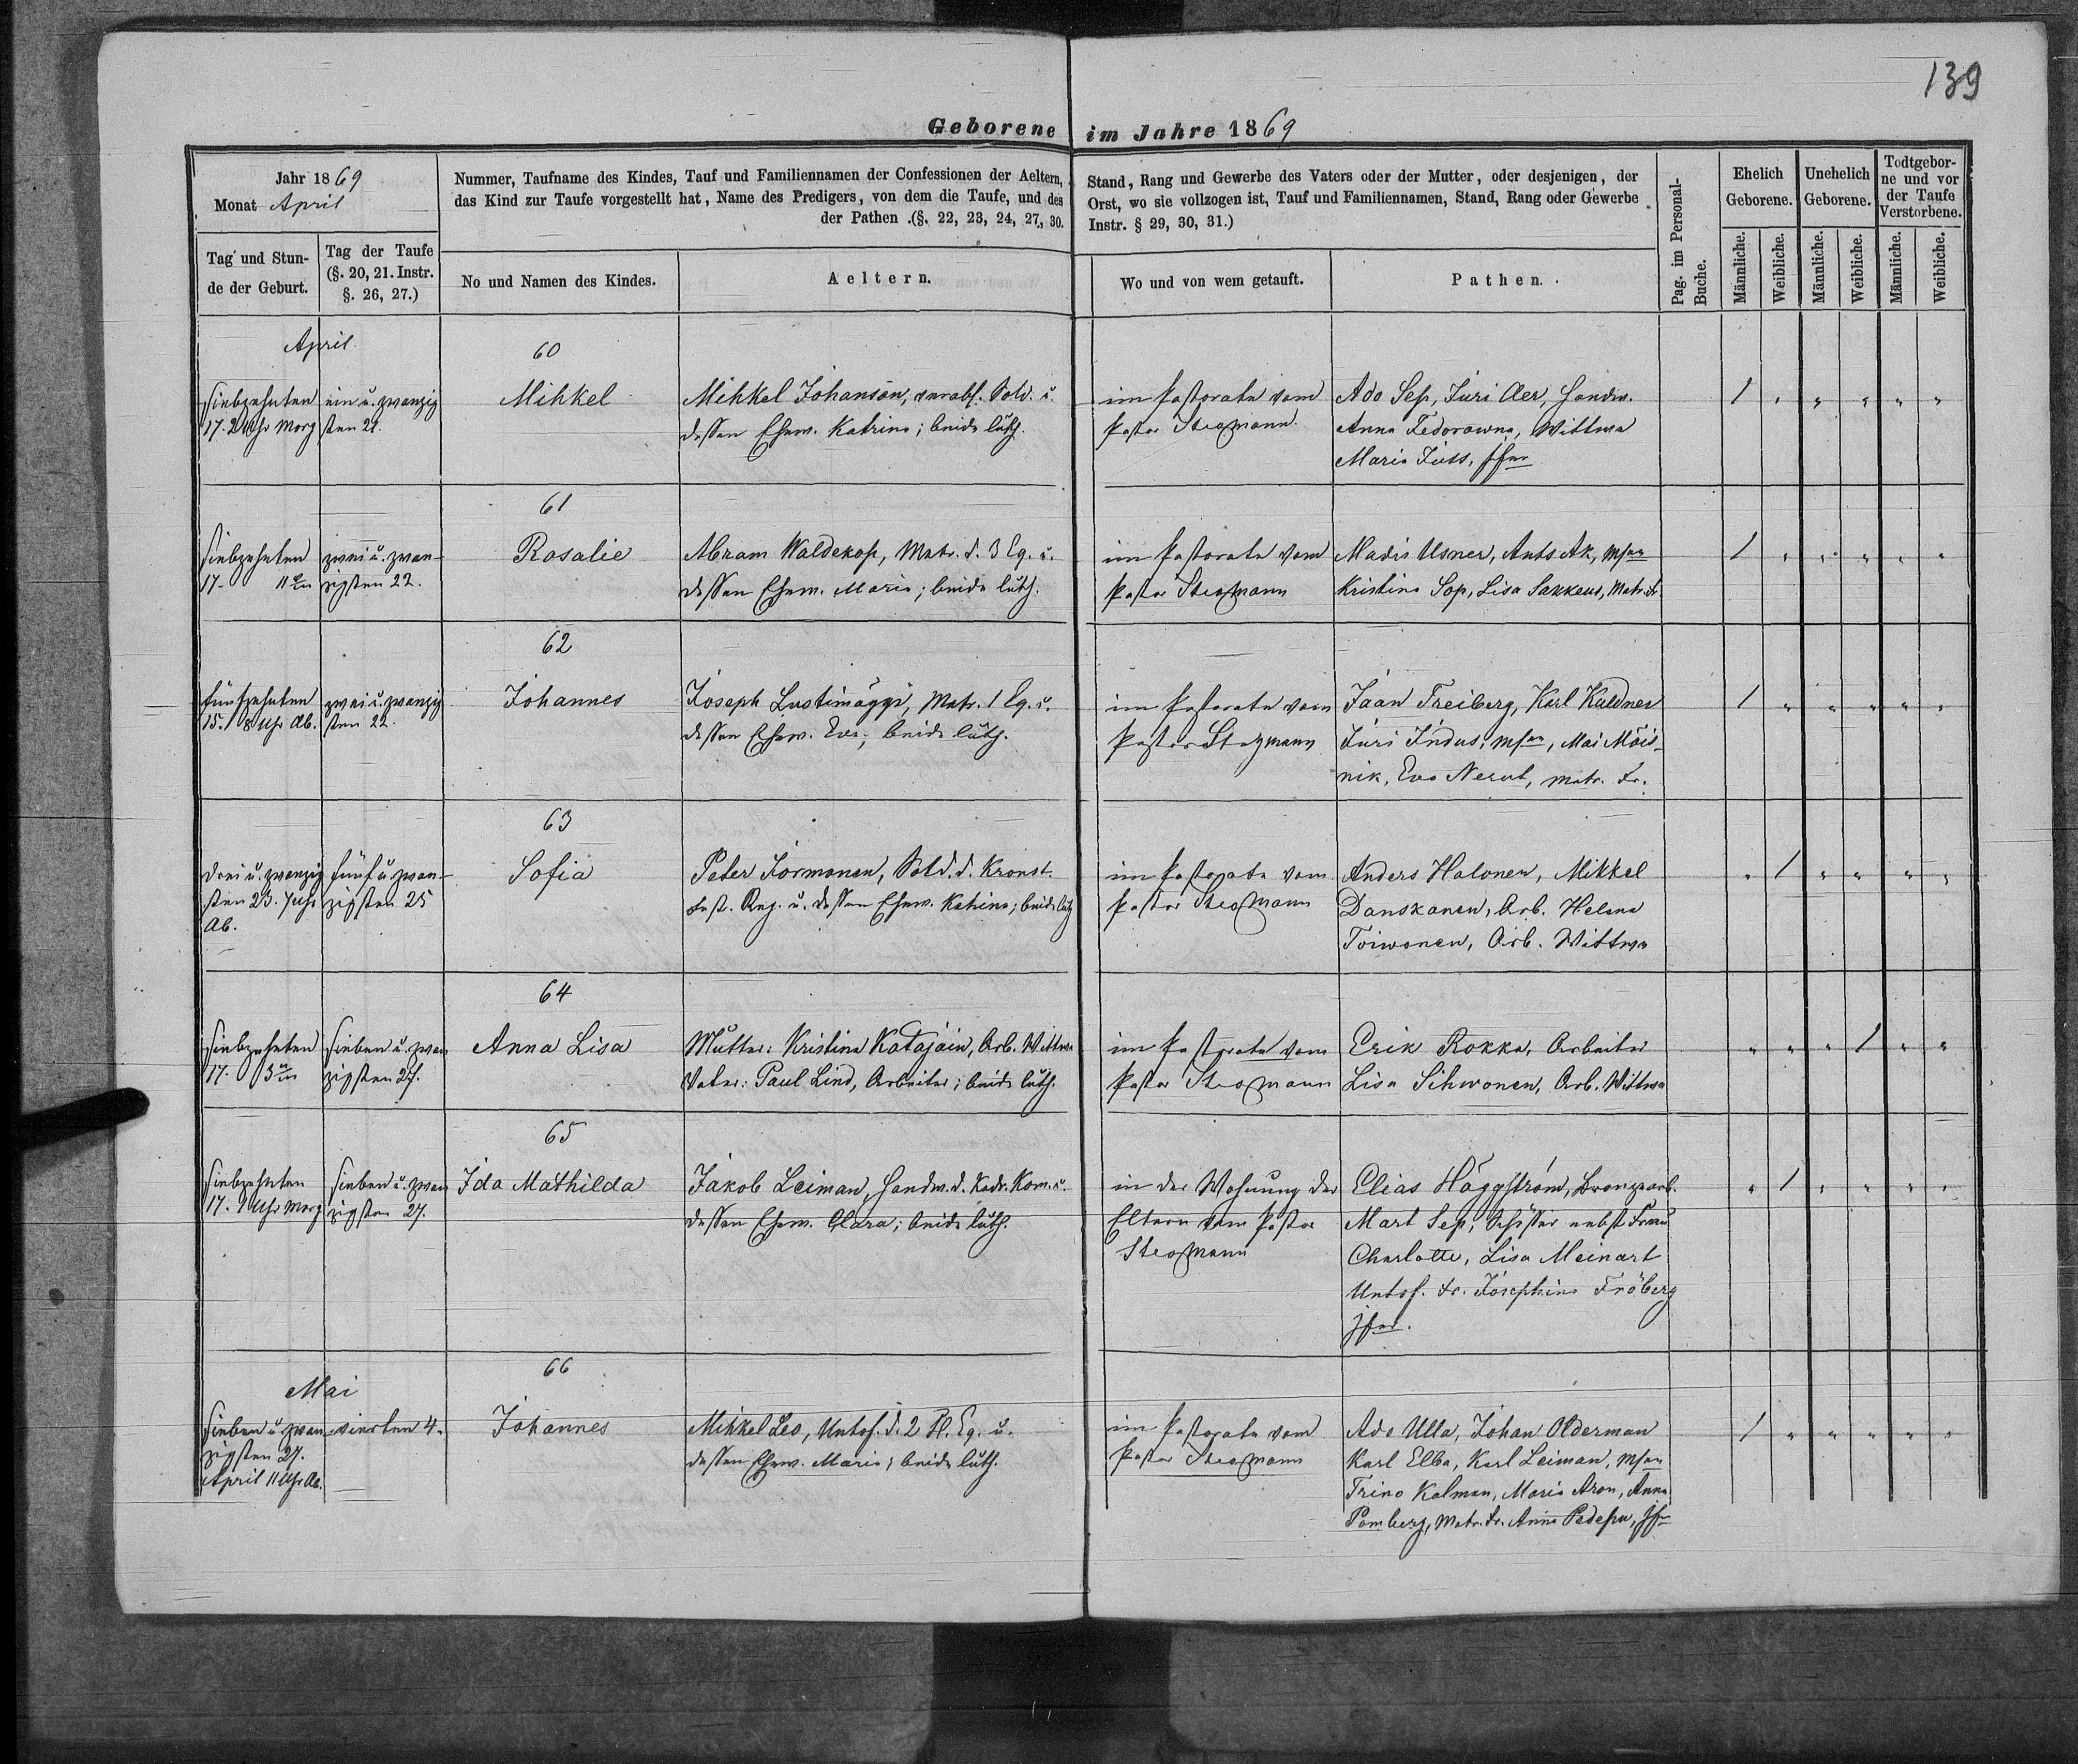 139
Geborene im Jahre 1869
Jahr 1869
Monat April
Nummer, Taufname des Kindes, Tauf und Familiennamen der Confessionen der Aeltern,
das Kind zur Taufe vorgestellt hat, Name des Predigers, von dem die Taufe, und des
der Pathen .(§. 22, 23, 24, 27., 30.
Stand, Rang und Gewerbe des Vaters oder der Mutter, oder desjenigen, der
Orst, wo sie vollzogen ist, Tauf und Familiennamen, Stand, Rang oder Gewerbe
Instr. § 29, 30, 31.)
Pag. im Personal-
Buche.
Ehelich
Geborene.
Unehelich
Geborene.
Todtgebor-
ne und vor
der Taufe
Verstorbene.
Tag und Stun-
de der Geburt.
Tag der Taufe
(§. 20, 21. Instr.
§. 26, 27.)
No und Namen des Kindes.
Aeltern.
Wo und von wem getauft.
Pathen.
Männliche.
Weibliche.
Männliche.
Weibliche.
Männliche.
Weibliche.
April
60
siebzehnten
17. 2 Uhr Morg
ein u. zwanzig
sten 21.
Mihkel
Mihkel Johanson, verabs. Sold. u.
dessen Ehew. Katrina; beide luth.
im Pastorate vom
Pastor
Ado Sep, Juri Aer, Handw.
Anna Fedorowna, Wittwe
Maria Juss, Jfer
1
61
siebzehnten
17.
zwei u. zwan-
zigsten 22.
Rosalie
Abram Waldekop, Matr. d. 3 Eq. u.
dessen Ehew. Maria; beide luth.
im Pastorate vom
Pastor
Madis Usner, Ants Ak,
Kristina Sop, Lisa Sakkeus, Matr. Fr.
1
62
fünfzehnten
15. 8 Uhr Ab.
zwei u. zwanzig
sten 22.
Johannes
Joseph Lustimäggi, Matr. 1 Eq. u.
dessen Ehew. Eva; beide luth.
im Pastorate vom
Pastor
Jaan Freiberg, Karl Kuldner
Juri Indus, Mai Mois-
nik, Eva Nerut, matr. Fr.
1
63
drei u. zwanzig
sten 23. 7 Uhr
Ab.
fünf u. zwan-
zigsten 25
Sofia
Peter Jormonen, Sold. d. Kronst.
Fest. Reg. u. dessen Ehew. Katrina; beide luth
im Pastorate vom
Pastor
Anders Halonen, Mikkel
Danskanen, Arb. Helena
Toiwonen, Arb. Wittwe
1
64
siebzehnten
17.
sieben u. zwan
zigsten 27.
Anna Lisa
Mutter: Kristina Katajain, Arb. Wittwe
Vater: Paul Lind, Arbeiter; beide luth.
im Pastorate vom
Pastor
Erik Rokka, Arbeiter
Lisa Sihwonen, Arb. Wittwe
1
65
siebzehnten
17. 9 Uhr Morg
sieben u. zwan
zigsten 27.
Ida Mathilda
Jakob Leiman, Handw. d. Kadr. Kom. u.
dessen Ehew. Clara; beide luth.
in der Wohnung der
Eltern vom Pastor
Elias Häggström, Bronzearb.
Mart Sep, nebst Frau
Charlotte, Lisa Meinart
Untof. Fr. Josephine Fröberg
Jfer.
1
66
Mai
sieben u. zwan-
zigsten 27.
April 11 Uhr Ab.
vierten 4.
Johannes
Mihkel Leo, Untof. d. 2 Fl. Eq. u.
dessen Ehew. Maria; beide luth.
im Pastorate vom
Pastor
Ado Ulla, Johan Olderman
Karl Elba, Karl Leiman,
Trino Kalman, Maria Aron, Anna
Pomberg, Matr. Fr. Anna Jfr
1